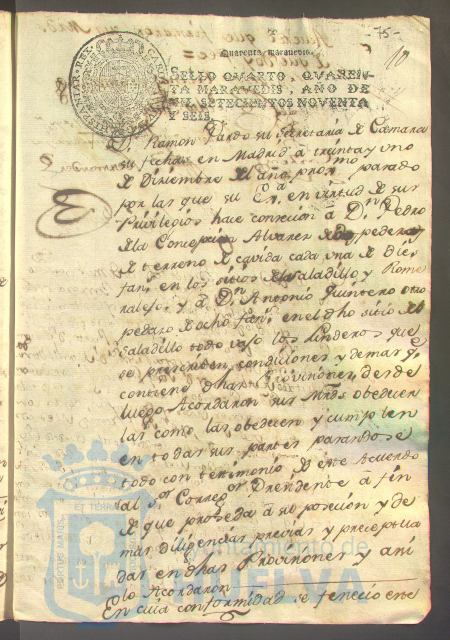 -75-
10
Quarenta maravedis.
SELLO QVARTO, QVAREN-
TA MARAVEDIS, AÑO DE
MIL SETECIENTOS NOVENTA
Y SEIS.
Dn. Ramon Pardo su Secretaria de Camara
su fecha en Madrid à treinta y uno
de Diciembre de año proxmo. parado
por las que su Exa. en virtud de sus
Privilegios hace concecion à Dn. Pedro
de la Concepcion Alvarez de dos pedazos
de terreno de cavida cada uno de diez
fans. en los sitios de Saladillo y Rome
rales, y à Dn. Antonio Quintero otro
pedazo de ocho fans. en el dho sitio del
Saladillo todo vajo los Linderos que
se prescriben, condiciones y demas q.
contiene dhas Proviciones, desde
luego Acordaron sus Mrds. obedecer
las como las obedecen y cumplen
en todas sus partes parandose
todo con testimonio de este Acuerdo
al Sor. Corregor. Prendente à fin
de que proceda à su posecion y de
mas diligencias previas y preceptua
das en dhas Provisiones y ani
lo Acordaron
En cuia conformidad se feneció este
Ayuntamiento de
HUELVA